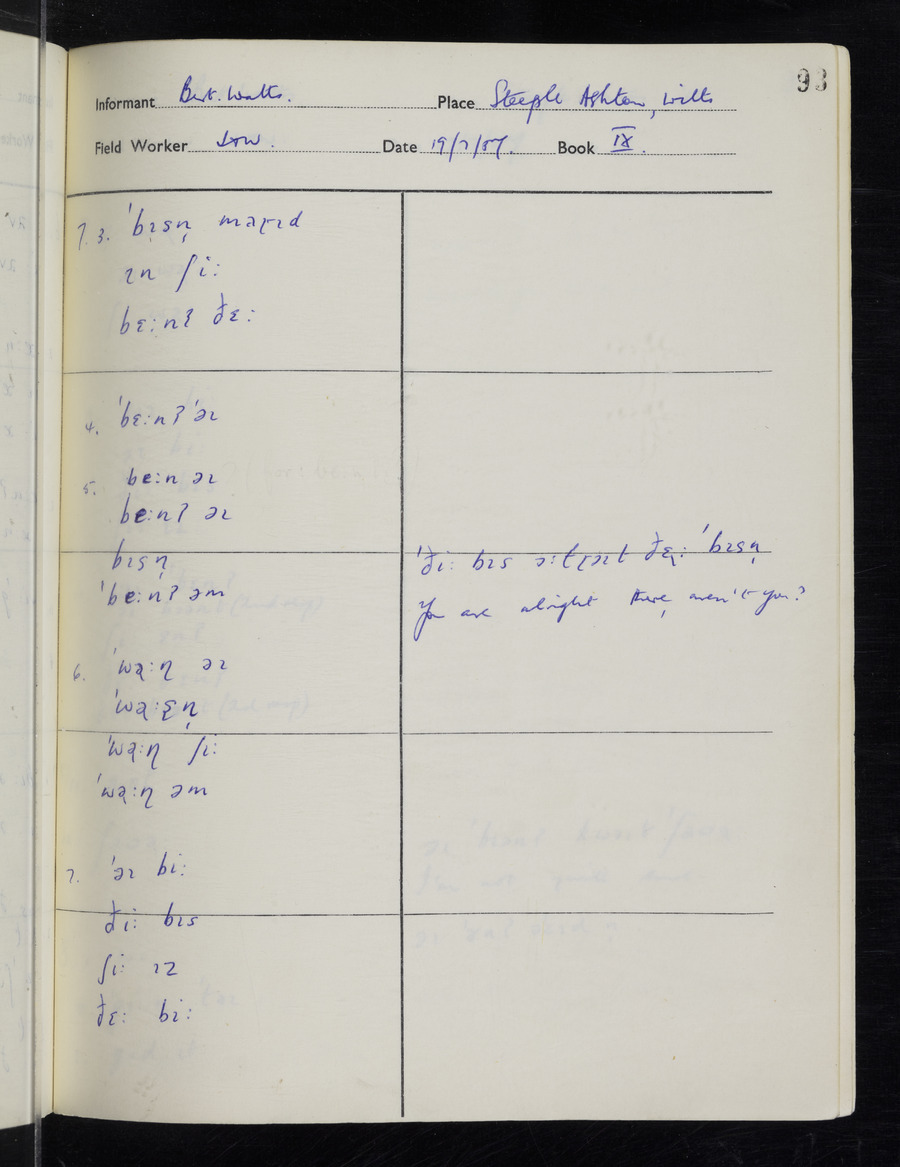 93
Informant Bert. Watts. Place Steeple Ashton, Wilts
Field Worker Date 19/7/57. Book IX.
7. 3. ˈbɪsn̩ maɽɪd
ɪn ʃiː
bɛːnʔ ðɛː
4. ˈbɛːnʔ ˈəɪ
5. beːn əɪ
beːnʔ əɪ
bɪsn̩
ˈbeːnʔ əm
ˈðiː bɪs ðɛː ˈbɪsn̩
You are alright there, aren't you?
6. əɪ
ʃiː
əm
7. ˈəɪ biː
ðiː bɪs
ʃiː ɪz
ðɛː bɪː